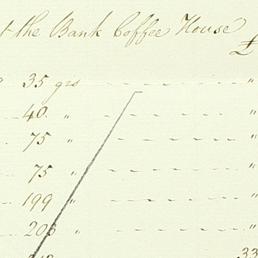 t the Bank Coffee House
£
35 grs - - - - - "
40. " - - - - - "
75 " - - - - - "
75 " - - - - - "
199 " - - - - - "
205 " - - - - - "
33